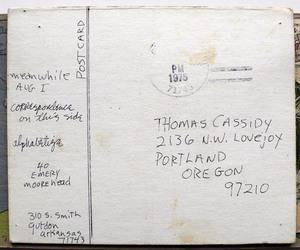 meanwhile
AUG I
correspondence
on this side
40
EMERY
moorehead
310 S. Smith
gurdon
arkansas
71743
POSTCARD
PM
1975
71743
THOMAS CASSIDY
2136 N.W. Lovejoy
PORTLAND
OREGON
97210